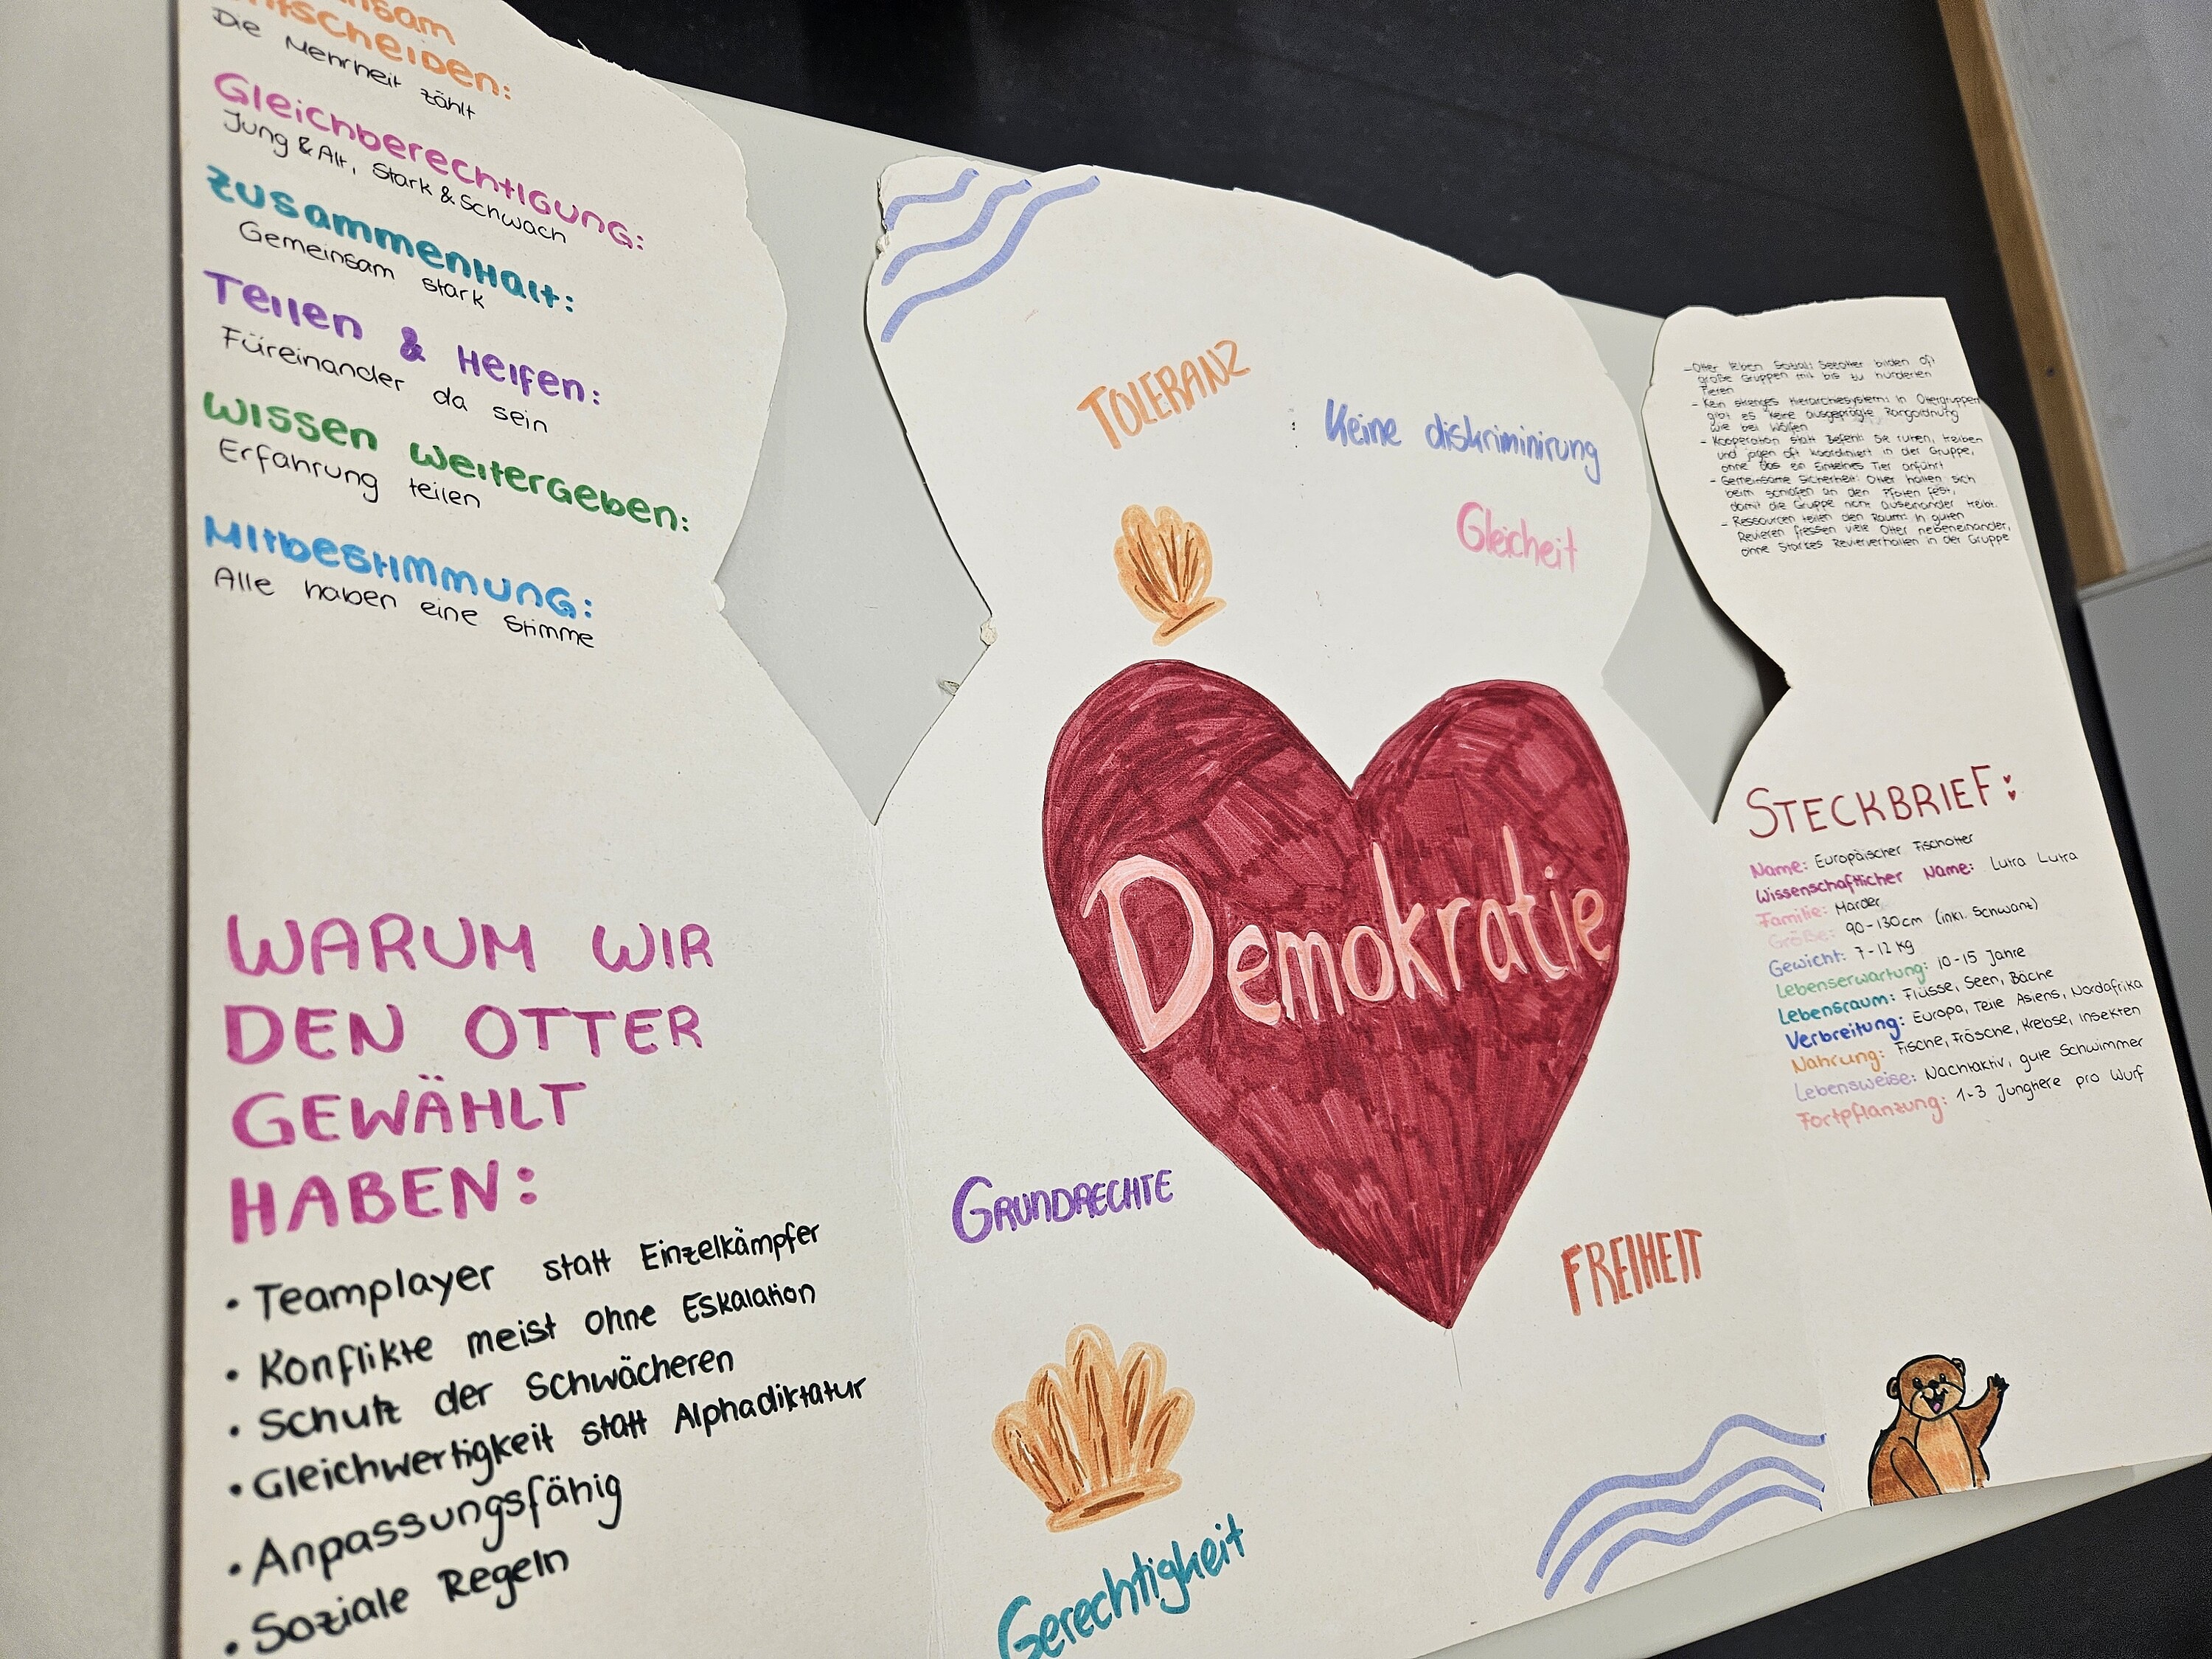 ntscheiden:
Die Mehrheit zählt
Gleichberechtigung:
Jung & Alt, Stark & Schwach
Zusammenhalt:
Gemeinsam stark
Teilen & Helfen:
Füreinander da sein
Wissen weitergeben:
Erfahrung teilen
Mitbestimmung:
Alle haben eine Stimme
WARUM WIR
DEN OTTER
GEWÄHLT
HABEN:
• Teamplayer statt Einzelkämpfer
• Konflikte meist ohne Eskalation
• Schutz der Schwächeren
• Gleichwertigkeit statt Alphadiktatur
• Anpassungsfähig
• Soziale Regeln
TOLERANZ
Keine diskriminirung
Gleicheit
Demokratie
GRUNDRECHTE
FREIHEIT
Gerechtigkeit
- Otter leben Sozial: Seeotter bilden oft
große Gruppen mit bis zu hunderten
Tieren
- Kein strenges Hierarchiesystem: In Ottergruppen
gibt es keine ausgeprägte Rangordnung
wie bei Wölfen
- Kooperation statt Befehl: Sie ruhen, treiben
und jagen oft koordiniert in der Gruppe,
ohne das ein Einzelnes Tier anführt
- Gemeinsame Sicherheit: Otter halten sich
beim schlafen an den Pfoten fest,
damit die Gruppe nicht auseinander treibt.
- Ressourcen teilen den Raum: In guten
Revieren fressen viele Otter nebeneinander,
ohne Starkes Revierverhalten in der Gruppe
STECKBRIEF:
Name: Europäischer Fischotter
Wissenschaftlicher Name: Lutra Lutra
Familie: Marder
Größe: 90-130cm (inkl. Schwanz)
Gewicht: 7-12 kg
Lebenserwartung: 10-15 Jahre
Lebensraum: Flüsse, Seen, Bäche
Verbreitung: Europa, Teile Asiens, Nordafrika
Nahrung: Fische, Frösche, Krebse, Insekten
Lebensweise: Nachtaktiv, gute Schwimmer
Fortpflanzung: 1-3 Jungtiere pro Wurf